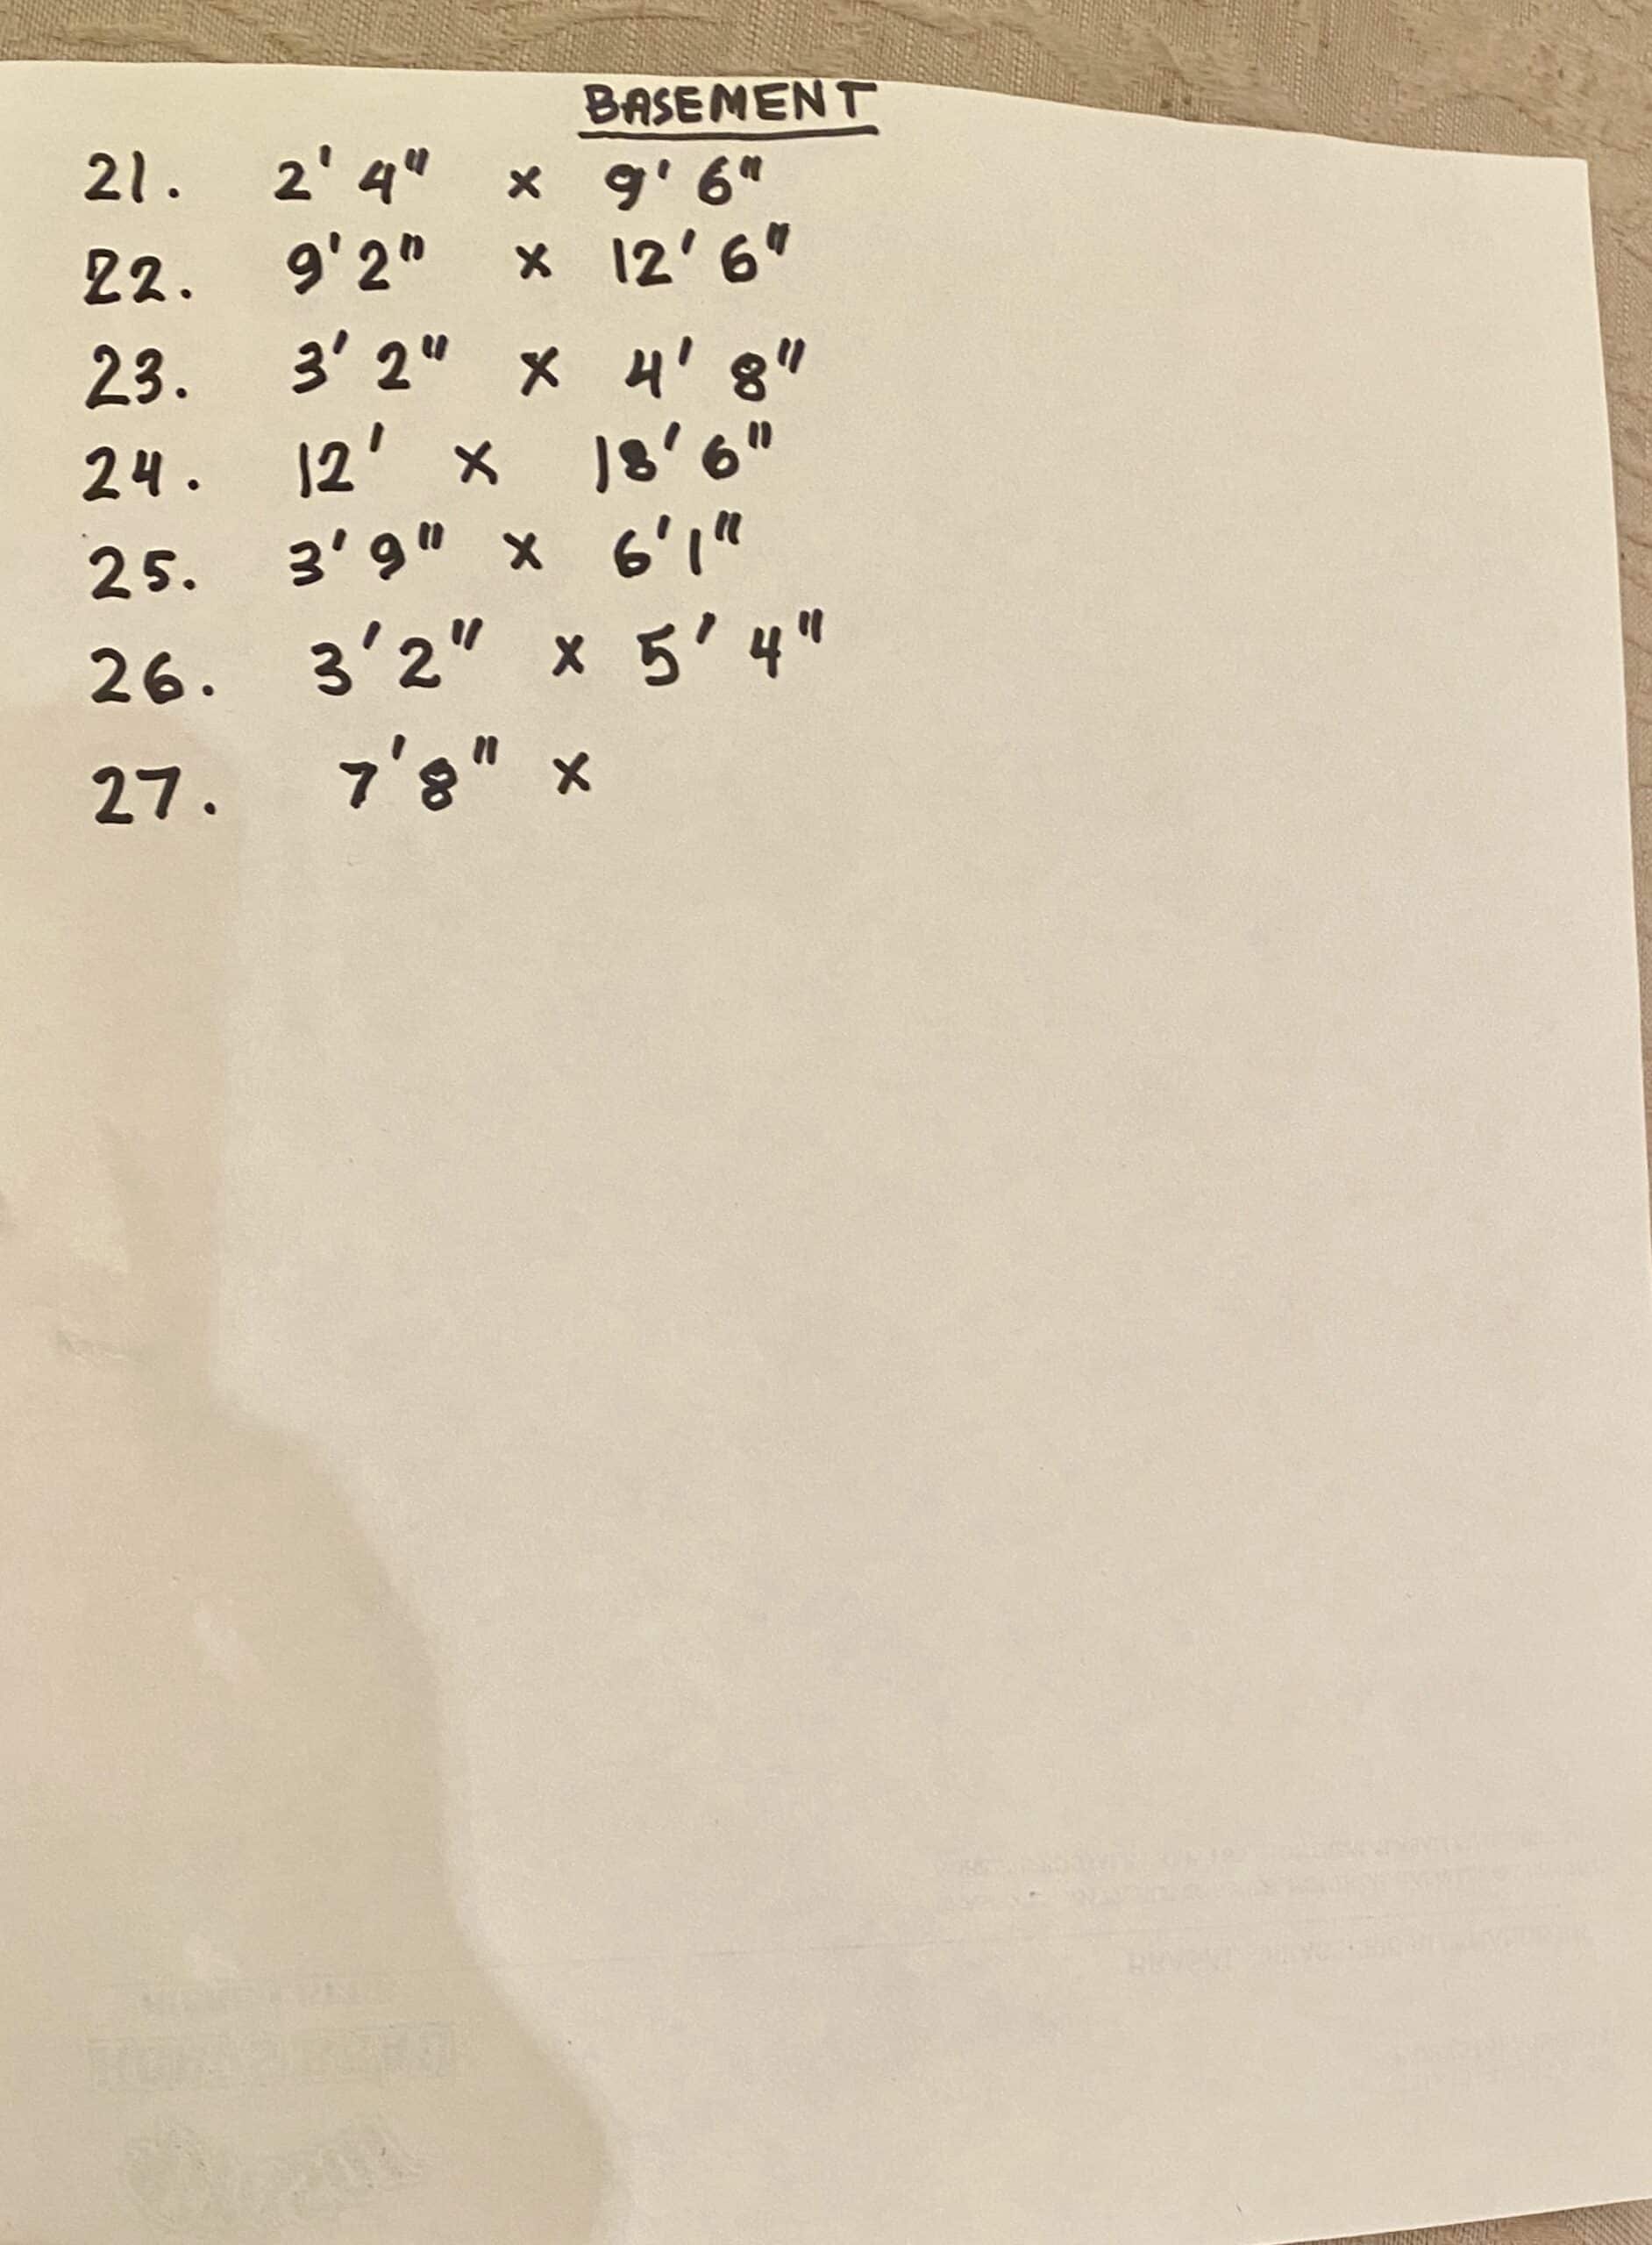 BASEMENT
21. 2' 4" x 9' 6"
22. 9' 2" x 12' 6"
23. 3' 2" x 4' 8"
24. 12' x 18' 6"
25. 3' 9" x 6' 1"
26. 3' 2" x 5' 4"
27. 7' 8" x